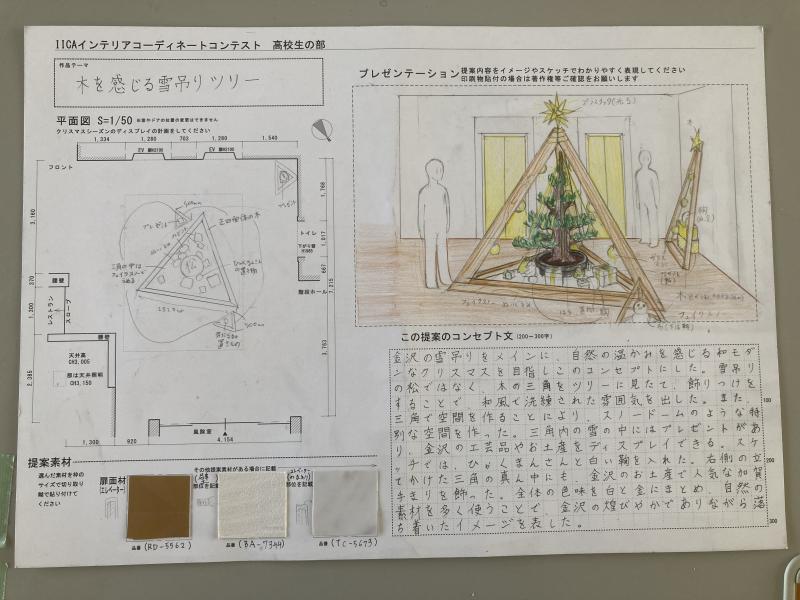 IICAインテリアコーディネートコンテスト 高校生の部
作品テーマ
木を感じる雪吊りツリー
平面図 S=1/50 ※壁やドアの位置の変更はできません
クリスマスシーズンのディスプレイの計画をしてください
1,334 1,280 703 1,280 1,540
EV 扉H2100 EV 扉H2100
フロント
プレゼント
プレゼント
正四面体の木
松
三角の中は
フェイクスノーで
うめる
ひゃくまんさん
の置き物
3,160
270
1,300
2,385
腰壁
レストラン
スロープ
腰壁
天井高
CH3,005
部は天井懐箱
CH3,150
1,768
トイレ
1,017
下がり壁
H1985
667
階段ホール
7,215
3,763
風除室
1,300 920 4,154
プレゼンテーション 提案内容をイメージやスケッチでわかりやすく表現してください
印刷物貼付の場合は著作権等ご確認をお願いします
プラスチック(光る)
木
フェイクスノー
フェイクスノー
この提案のコンセプト文(200~300字)
金沢の雪吊りをメインに、自然の温かみを感じる和モダ
ンなクリスマスを目指しこのコンセプトにした。雪吊り
の松ではなく、木の三角をツリーに見たて、飾りつけを
することで、和風で洗練された雰囲気を出した。また、
三角で空間を作ることにより、スノードームのような特
別な空間を作った。三角内の雪の中にはプレゼントがあ
り、金沢の工芸品やお土産をディスプレイできる。スケ
ッチでは、ひゃくまんさんと白い鞠を入れた。右側の立
てかけた三角の真ん中にも、金沢のお土産で人気な加賀
手まりを飾った。全体の色味を白と金にまとめ、自然の
素材を多く使うことで、金沢の煌びやかでありながら落
ち着いたイメージを表した。
100
200
300
提案素材
選んだ素材を枠の
サイズで切り取り
糊で貼り付けて
ください
扉面材
(エレベーター)
その他提案素材がある場合に記載
部位を記載
部位を記載
品番 (RD-5562) 品番 (BA-7344) 品番 (TC-5673)